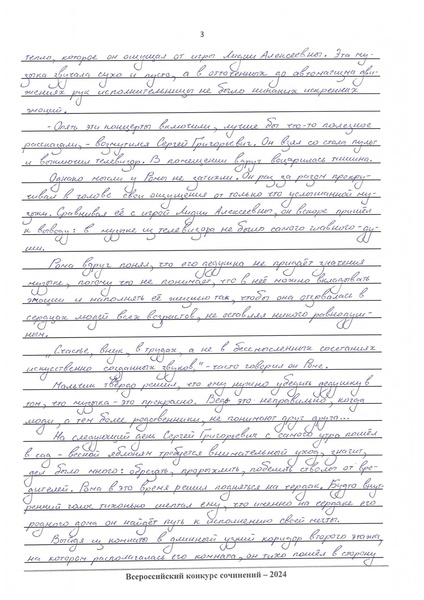 3
тепло, которое он ощущал от игры Лидии Алексеевны. Эта му-
зыка звучала сухо и пусто, а в отточенных до автоматизма дви-
жениях рук исполнительницы не было никаких искренних
эмоций.
- Опять эти концерты включили, лучше бы что-то полезное
рассказали, - возмутился Сергей Григорьевич. Он взял со стола пульт
и выключил телевизор. В помещении вдруг воцарилась тишина.
Однако мысли у Ромы не затихли. Он раз за разом прокру-
чивал в голове свои ощущения от только что услышанной му-
зыки. Сравнивая её с игрой Лидии Алексеевны, он вскоре пришёл
к выводу: в музыке из телевизора не было самого главного - ду-
ши.
Рома вдруг понял, что его дедушка не придаёт значения
музыке, потому что не понимает, что в неё можно вкладывать
эмоции и наполнять её жизнью так, чтобы она отзывалась в
сердцах людей всех возрастов, не оставляя никого равнодуш-
ным.
„Счастье, внук, в трудах, а не в бессмысленных сочетаниях
искусственно созданных звуков," - часто говорил он Роме.
Мальчик твёрдо решил, что ему нужно убедить дедушку в
том, что музыка - это прекрасно. Ведь это неправильно, когда
люди, а тем более родственники, не понимают друг друга...
На следующий день Сергей Григорьевич с самого утра пошёл
в сад - весной яблоням требуется внимательный уход, значит,
дел было много: обрезать, прорыхлить, побелить стволы от вре-
дителей. Рома в это время решил подняться на чердак. Будто внут-
ренний голос тихонько шептал ему, что именно на чердаке его
родного дома он найдёт путь к исполнению своей мечты.
Выйдя из комнаты в длинный узкий коридор второго этажа,
на котором располагалась его комната, он тихо пошёл в сторону
Всероссийский конкурс сочинений – 2024